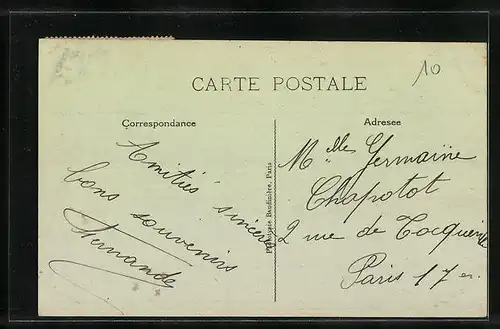 CARTE POSTALE
10
Correspondance
Amitiés sincères
bons souvenirs
Fernande
Phototypie Baudinière, Paris
Adresse
Melle Germaine
Chapotot
2 rue de Tocqueville
Paris 17e